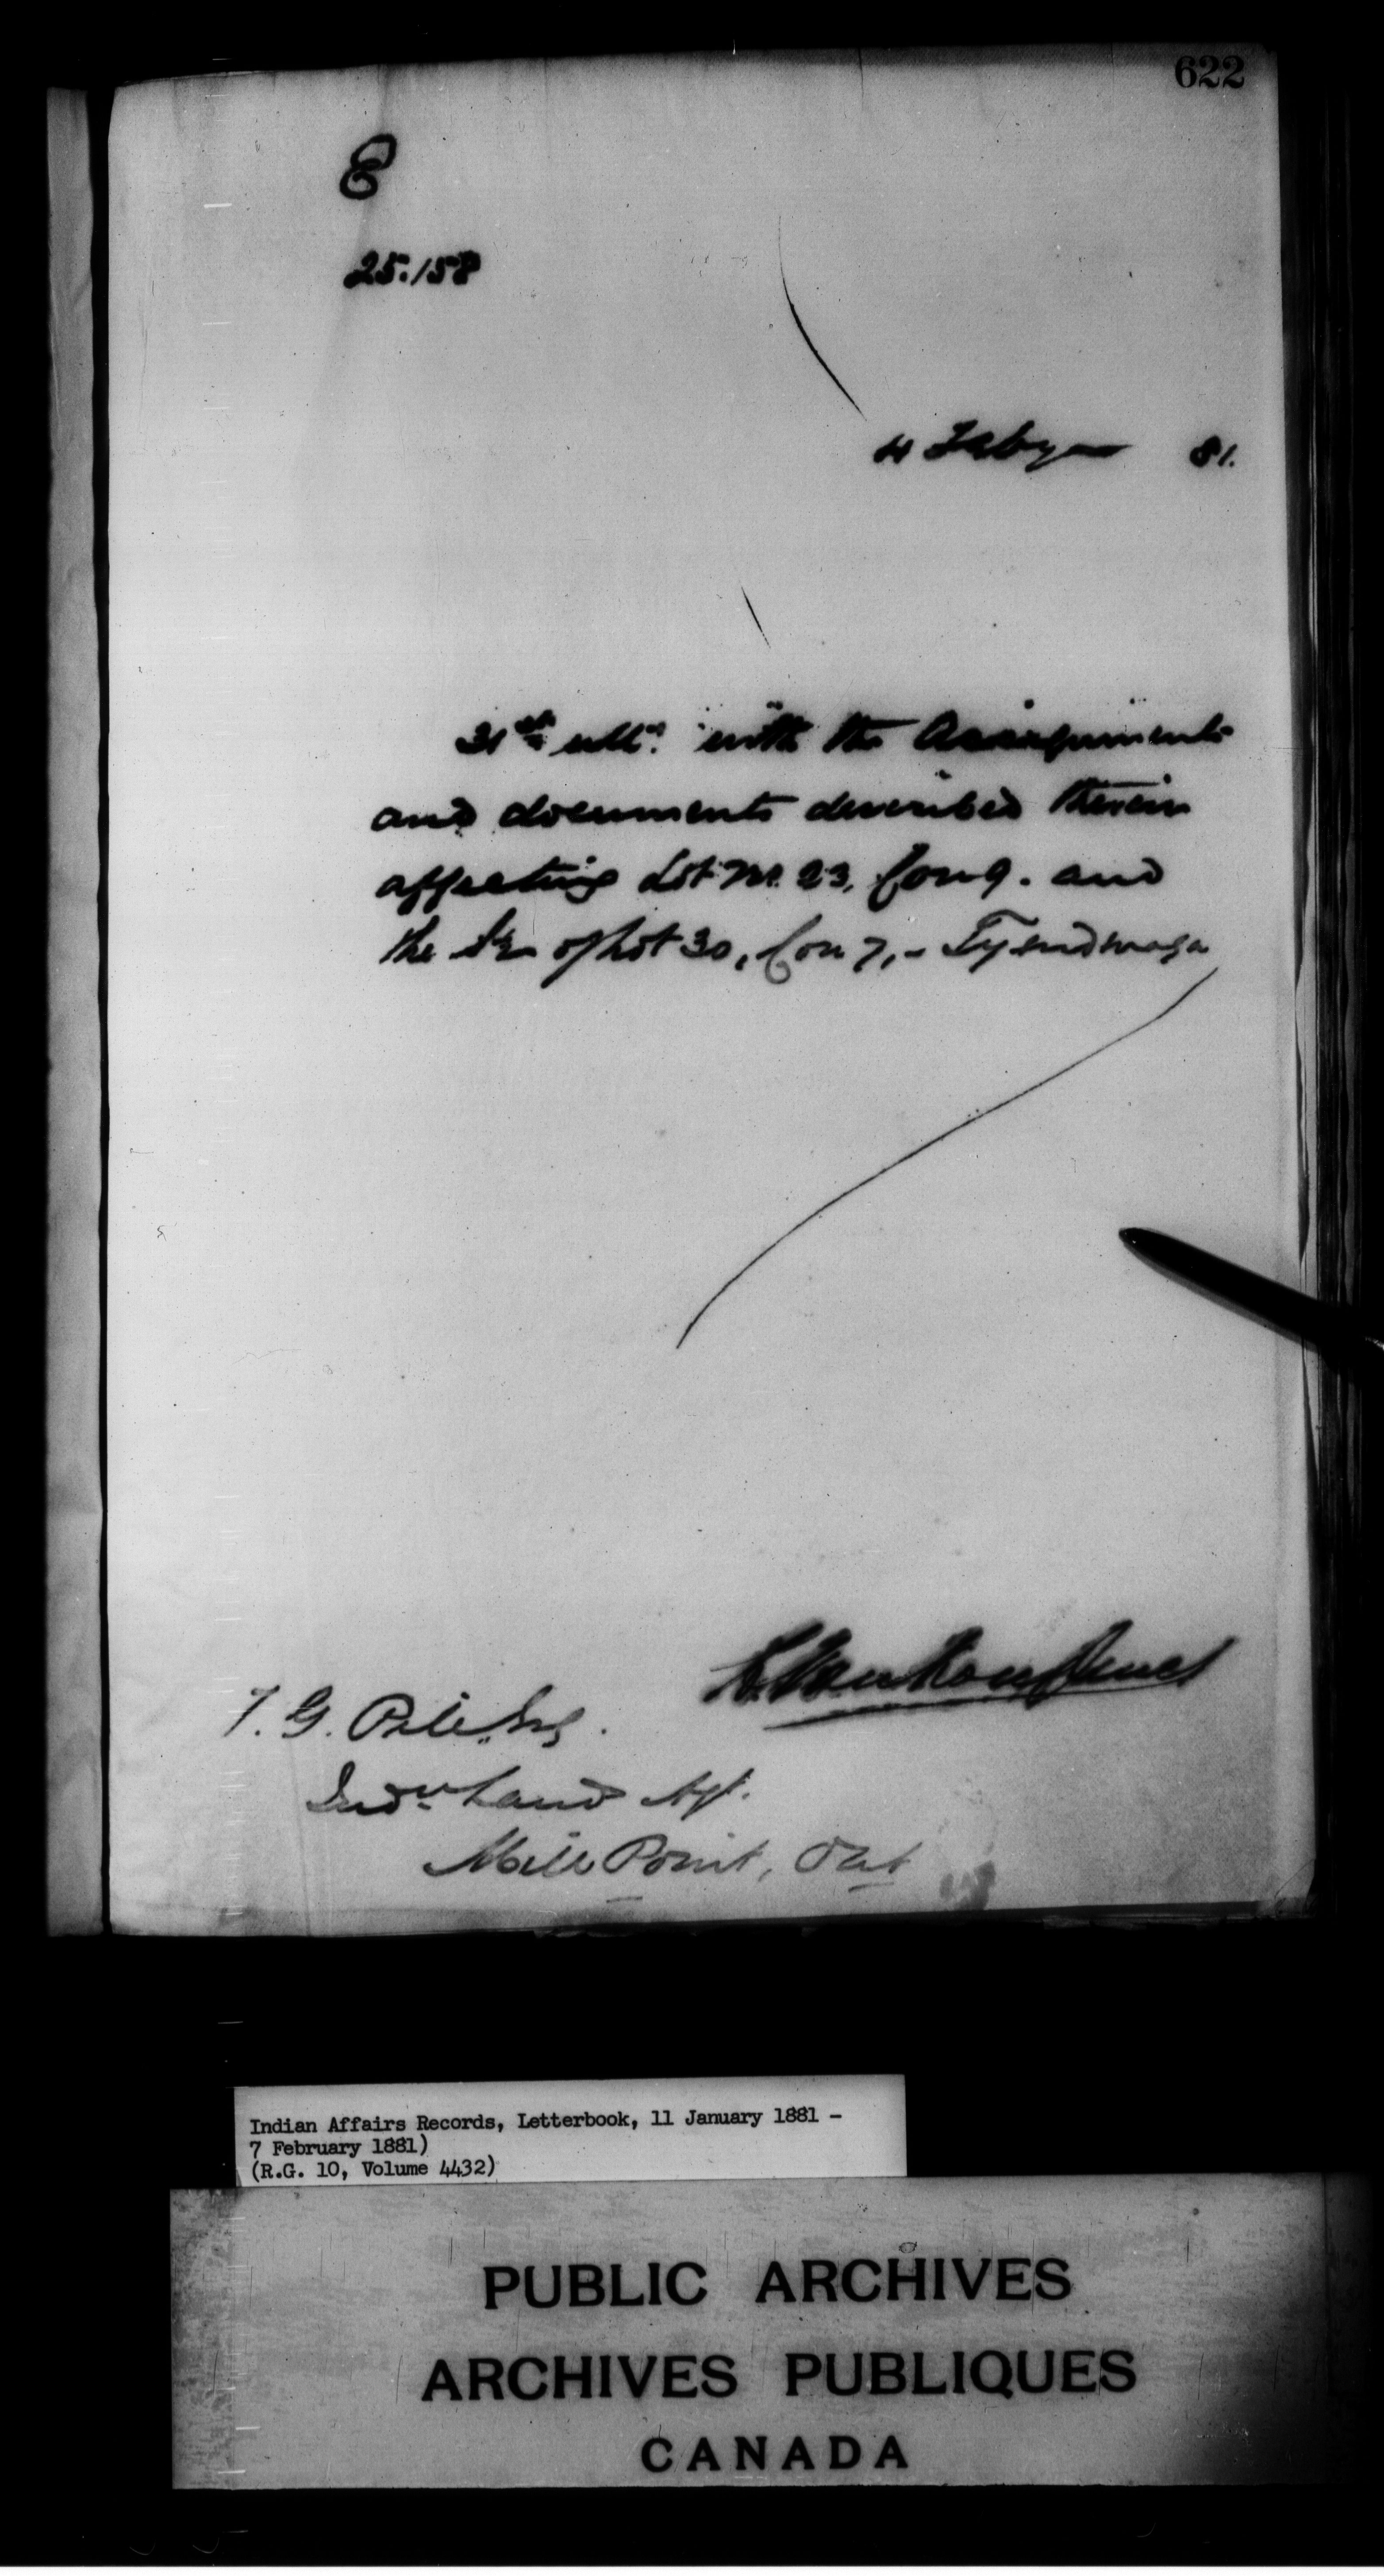 622
E
25.158
4 Feby 81.
31st ulto. with the Assignments
and documents described therein
affecting Lot No. 23, Con 9. and
the S½ of Lot 30, Con 7, - Tyendinaga
L. VanKoughnet
T. G. Pile, Esq.
Indn Land Agt.
Mill Point, Ont
Indian Affairs Records, Letterbook, 11 January 1881 -
7 February 1881)
(R.G. 10, Volume 4432)
PUBLIC ARCHIVES
ARCHIVES PUBLIQUES
CANADA